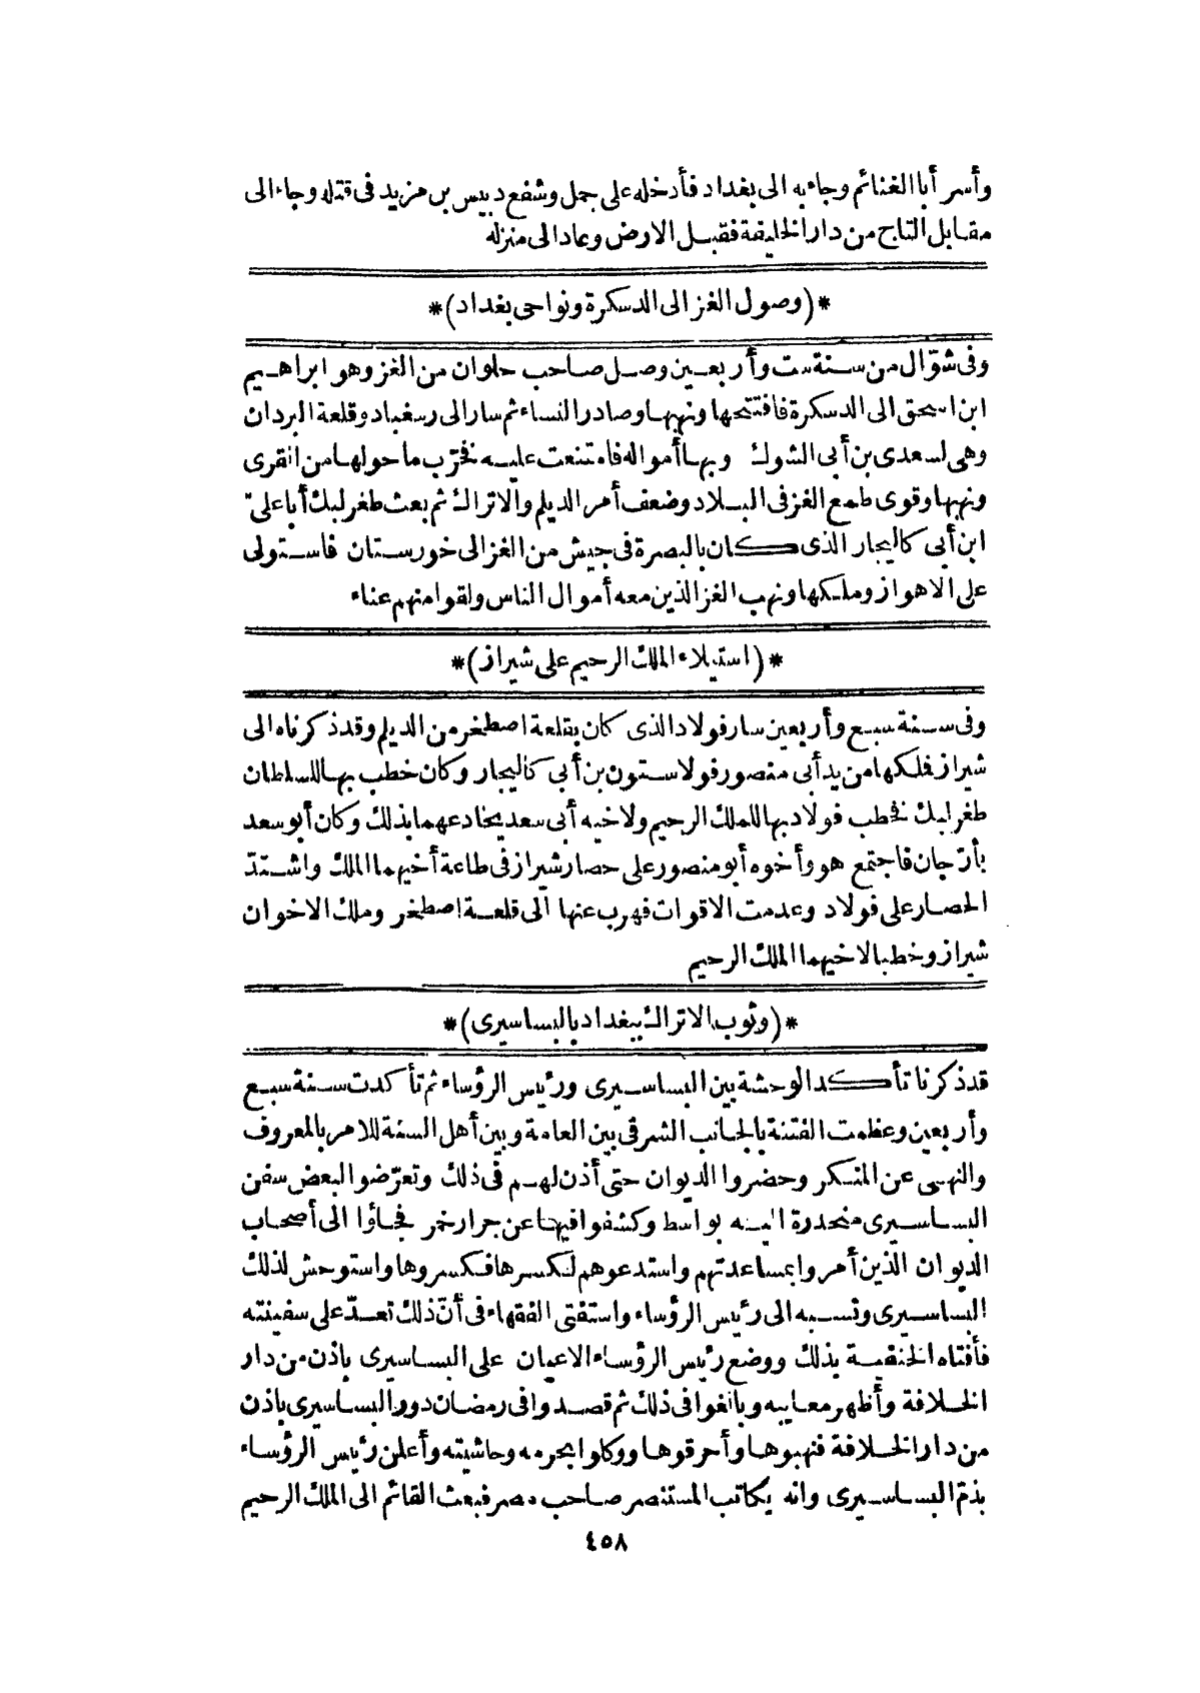 وأسر أبا الغنائم وجاء به الى بغداد فأدخله على جمل وشفع دبيس بن مزيد فى قتله وجاء الى
مقابل التاج من دار الخليفة فقبل الارض وعاد الى منزله
*(وصول الغز الى الدسكرة ونواحى بغداد)*
وفى شوّال من سنة ست وأربعين وصل صاحب حلوان من الغز وهو ابراهيم
ابن اسحق الى الدسكرة فافتتحها ونهبها وصادر النساء ثم سار الى رسغباد وقلعة البردان
وهى لسعدى بن أبى الشوك وبها أمواله فامتنعت عليه فخرّب ما حولها من القرى
ونهبها وقوى طمع الغز فى البلاد وضعف أمر الديلم والاتراك ثم بعث طغرلبك أبا علىّ
ابن أبى كاليجار الذى كان بالبصرة فى جيش من الغز الى خورستان فاستولى
على الاهواز وملكها ونهب الغز الذين معه أموال الناس ولقوا منهم عناء
*(استيلاء الملك الرحيم على شيراز)*
وفى سنة سبع وأربعين سار فولاد الذى كان بقلعة اصطخر من الديلم وقد ذكرناه الى
شيراز فملكها من يد أبى منصور فولاستون بن أبى كاليجار وكان خطب بها للسلطان
طغرلبك فخطب فولاد بها للملك الرحيم ولاخيه أبى سعد يخادعهما بذلك وكان أبو سعد
بأرّجان فاجتمع هو وأخوه أبو منصور على حصار شيراز فى طاعة أخيهما الملك واشتدّ
الحصار على فولاد وعدمت الاقوات فهرب عنها الى قلعة اصطخر وملك الاخوان
شيراز وخطبا لاخيهما الملك الرحيم
*(وثوب الاتراك ببغداد بالبساسيرى)*
قد ذكرنا تأكد الوحشة بين البساسيرى ورئيس الرؤساء ثم تأكدت سنة سبع
وأربعين وعظمت الفتنة بالجانب الشرقى بين العامة وبين أهل السنة للامر بالمعروف
والنهى عن المنكر وحضروا الديوان حتى أذن لهم فى ذلك وتعرّضوا لبعض سفن
البساسيرى منحدرة اليه بواسط وكشفوا فيها عن جرار خمر فجاؤا الى أصحاب
الديوان الذين أمروا بمساعدتهم واستدعوهم لكسرها فكسروها واستوحش لذلك
البساسيرى ونسبه الى رئيس الرؤساء واستفتى الفقهاء فى أنّ ذلك تعدّ على سفينته
فأفتاه الحنفية بذلك ووضع رئيس الرؤساء الاعيان على البساسيرى باذن من دار
الخلافة وأظهر معايبه وبالغوا فى ذلك ثم قصدوا فى رمضان دور البساسيرى باذن
من دار الخلافة فنهبوها وأحرقوها ووكلوا بحرمه وحاشيته وأعلن رئيس الرؤساء
بذمّ البساسيرى وانه يكاتب المستنصر صاحب مصر فبعث القائم الى الملك الرحيم
٤٥٨